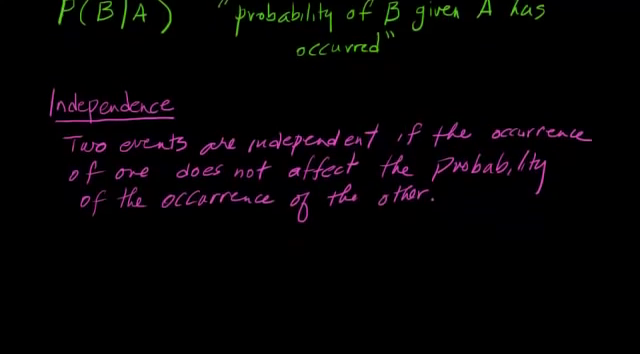 P(B|A) "probability of B given A has
occurred"
Independence
Two events are independent if the occurrence
of one does not affect the probability
of the occurrence of the other.